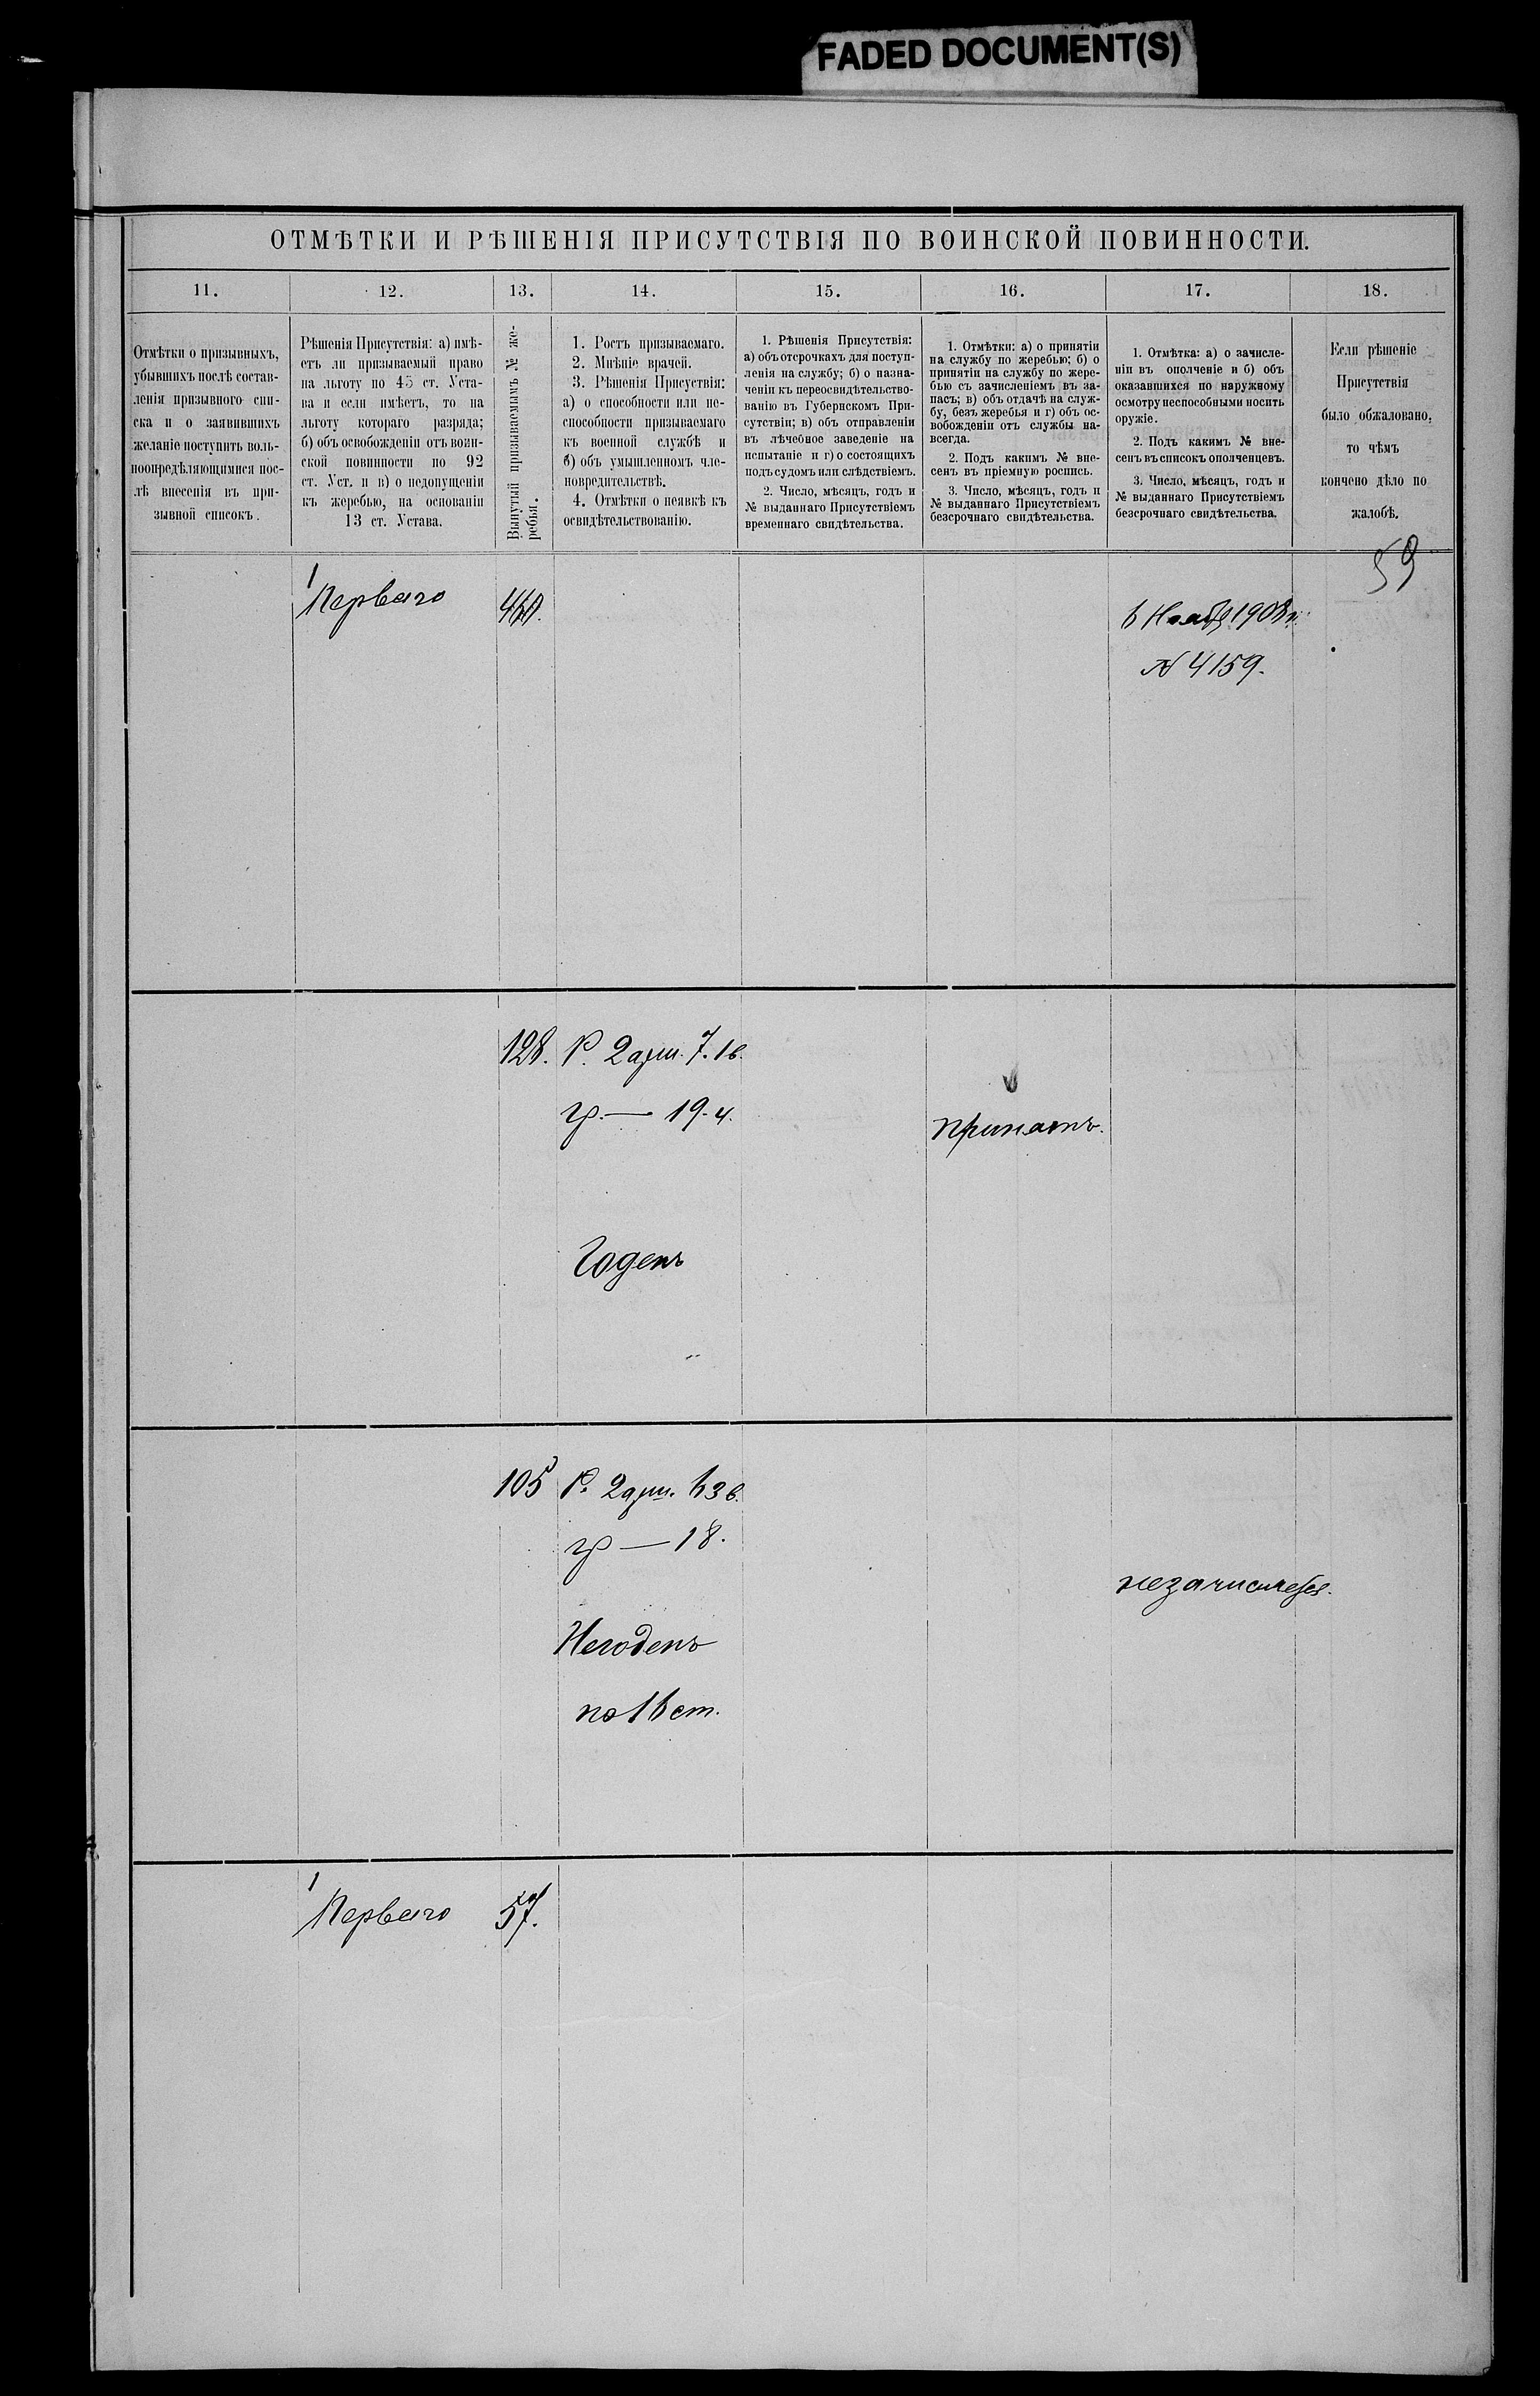 FADED DOCUMENT(S)
ОТМѢТКИ И РѢШЕНІЯ ПРИСУТСТВІЯ ПО ВОИНСКОЙ ПОВИННОСТИ.
11.
12.
13.
14.
15.
16.
17.
18.
Отмѣтки о призывныхъ,
убывшихъ послѣ состав-
ленія призывного спи-
ска и о заявившихъ
желаніе поступить воль-
ноопредѣляющимися пос-
лѣ внесенія въ при-
зывной списокъ.
Рѣшенія Присутствія: а) имѣ-
етъ ли призываемый право
на льготу по 45 ст. Уста-
ва и если имѣетъ, то на
льготу котораго разряда;
б) объ освобожденіи отъ воин-
ской повинности по 92
ст. Уст. и в) о недопущеніи
къ жеребью, на основаніи
13 ст. Устава.
Вынутый призываемымъ № же-
ребья.
1. Ростъ призываемаго.
2. Мнѣніе врачей.
3. Рѣшенія Присуствія:
а) о способности или не-
способности призываемаго
къ военной службѣ и
б) объ умышленномъ чле-
новредительствѣ.
4. Отмѣтки о неявкѣ къ
освидѣтельствованію.
1. Рѣшенія Присутствія:
а) объ отсрочкахъ для поступ-
ленія на службу; б) о назна-
ченіи къ переосвидѣтельство-
ванію въ Губернскомъ При-
сутствіи; в) объ отправленіи
въ лѣчебное заведеніе на
испытаніе и г) о состоящихъ
подъ судомъ или слѣдствіемъ.
2. Число, мѣсяцъ, годъ и
№ выданнаго Присутствіемъ
временнаго свидѣтельства.
1. Отмѣтки: а) о принятіи
на службу по жеребью; б) о
принятіи на службу по жере-
бью съ зачисленіемъ въ за-
пасъ; в) объ отдачѣ на служ-
бу, безъ жеребья и г) объ ос-
вобожденіи отъ службы на-
всегда.
2. Подъ какимъ № вне-
сенъ въ пріемную роспись.
3. Число, мѣсяцъ, годъ и
№ выданнаго Присутствіемъ
безсрочнаго свидѣтельства.
1. Отмѣтка: а) о зачисле-
ніи въ ополченіе и б) объ
оказавшихся по наружному
осмотру неспособными носить
оружіе.
2. Подъ какимъ № вне-
сенъ въ списокъ ополченцевъ.
3. Число, мѣсяцъ, годъ и
№ выданнаго Присутствіемъ
безсрочнаго свидѣтельства.
Если рѣшеніе
Присутствія
было обжаловано,
то чѣмъ
кончено дѣло по
жалобѣ.
59
1
Перваго
460.
6 Ноября 1903 г.
№ 4159.
128.
Р. 2 арш. 7. 1 в.
гр. — 19. ч.
принятъ.
Годенъ
105
Р. 2 арш. 6 3 в.
гр — 18.
Негоденъ
по 16 ст.
1
Перваго
57.